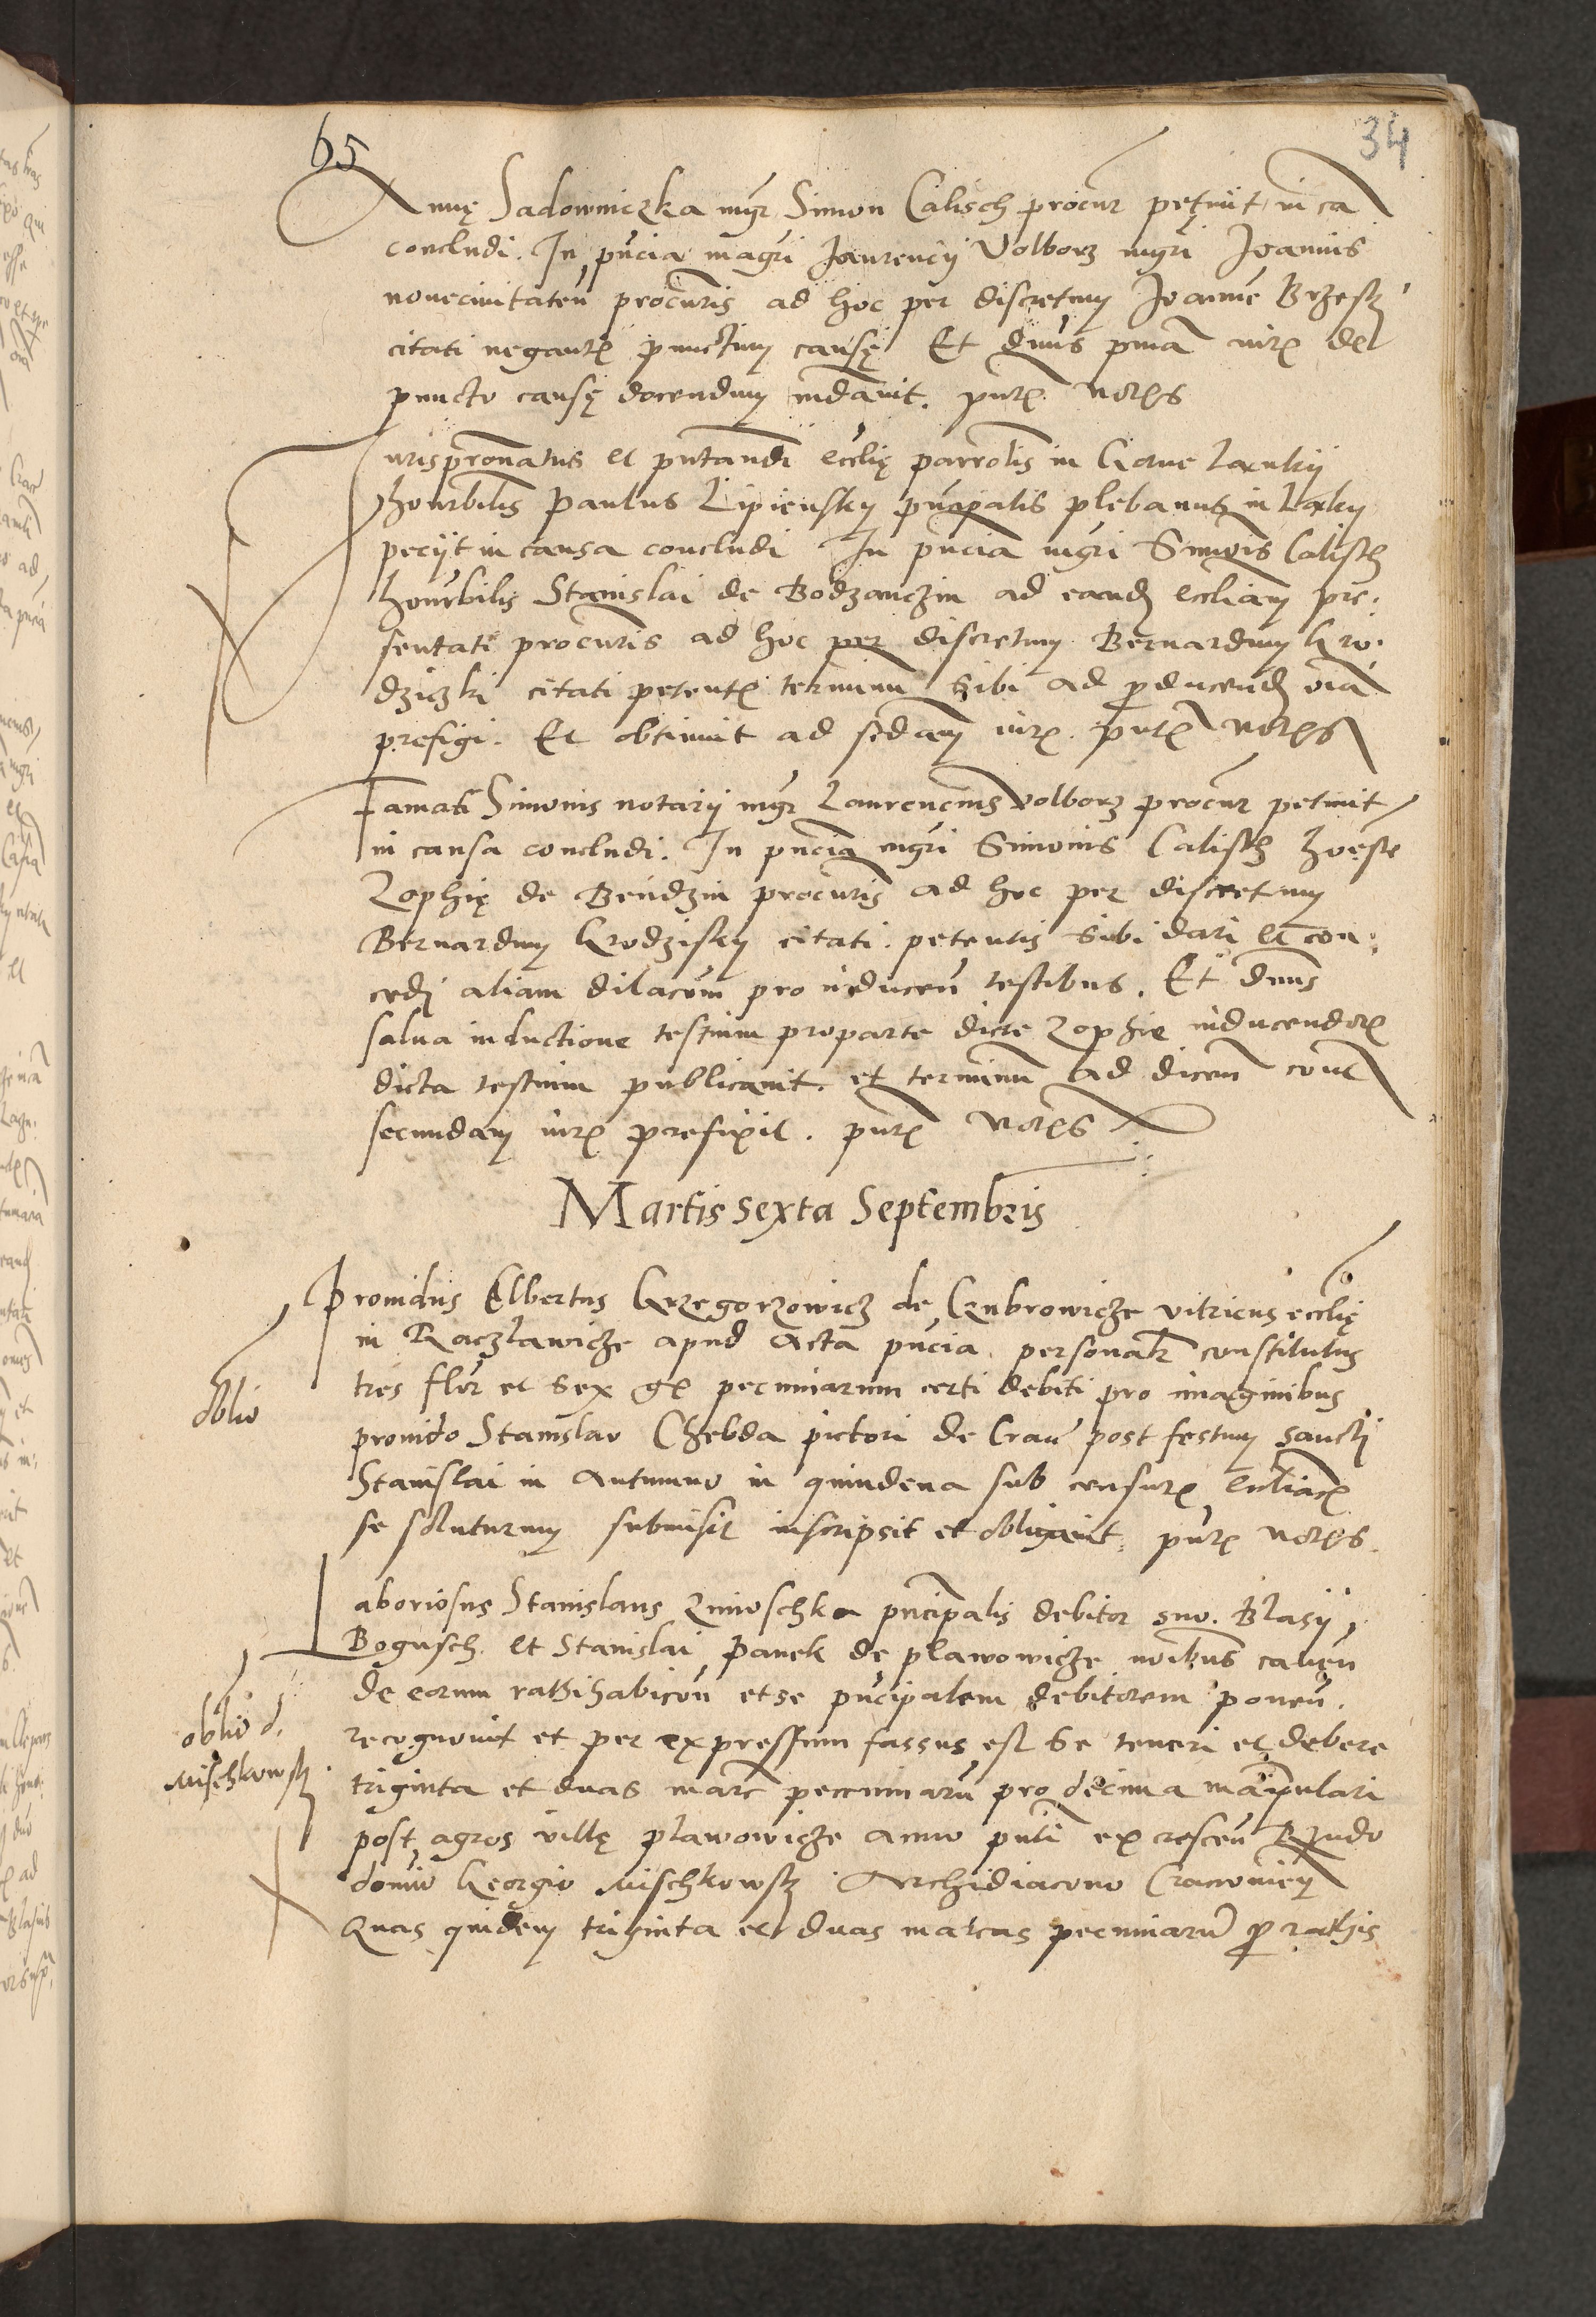 65
34
Annę Sadowniczka mgr Simon Calisch procur petiuit in ca
concludi. In pncia magri Laurencij Volborz mgri Joannis
novecivitaten procuris ad hoc per discretum Joanne Brzesk
citati negante punctum causę Et dnus pma iure de
puncto causę docendum mdavit. pnte notes
Jurispronatus et pntandi ecclię parrolis in
honrbilis Paulus Lipiensky pncipalis plebanus in
peciit in causa concludi In pncia mgri Simois Calisch
honrbilis Stanislai de Bodzanczin ad eand eccliam pre:
sentati procuris ad hoc per discretum Bernardum Gro:
dziczki citati petente terminu sibi ad producend oia
prefigi. Et obtinuit ad scdam iure. pnte notes
Famati Simonis notarij mgr Laurencius Volborz procur petiuit
in causa concludi. In pncia mgri Simonis Calisch honeste
Zophię de Bendzin procuris ad hoc per discretum
Bernardum Grodzisky citati. petentis sibi dari et con:
cedi aliam dilacom pro inducen testibus. Et dnus
salva inductione testium pro parte dicte Zophie inducendor
dicta testium publicavit. et terminu ad dicen con
secundam iure prefixit. pnte notes
Martis sexta Septembris
Providus Albertus Grzegorzowicz de vitricus ecclię
in Raczlawicze apud Acta pncia personalr constitutus
oblio
tres flor et sex gr pecuniarum certi debiti pro imaginibus
provido Stanislao Chebda pictori de Crac post festum sancti
Stanislai in Autumno in quindena sub censure eccliace
se soluturum submisit inscripsit et obligavit. pnte notes.
Laboriosus Stanislaus pncipalis debitor suo. Blasij
Bogusch. et Stanislai Panek de Plawowicze noibus caven
de eorum rathihabicon et se pncipalem debitorem ponen.
oblio d.
Mischkowsk
recognouit et per expressum fassus est se teneri et debere
triginta et duas marc pecuniaru pro decima manipulari
post agros villę Plawowicze anno pnti ex crescen Rndo
domio Georgio Mischkowsk Archidiacono Cracovien
Quas quidem triginta et duas marcas pecuniaru p rathis